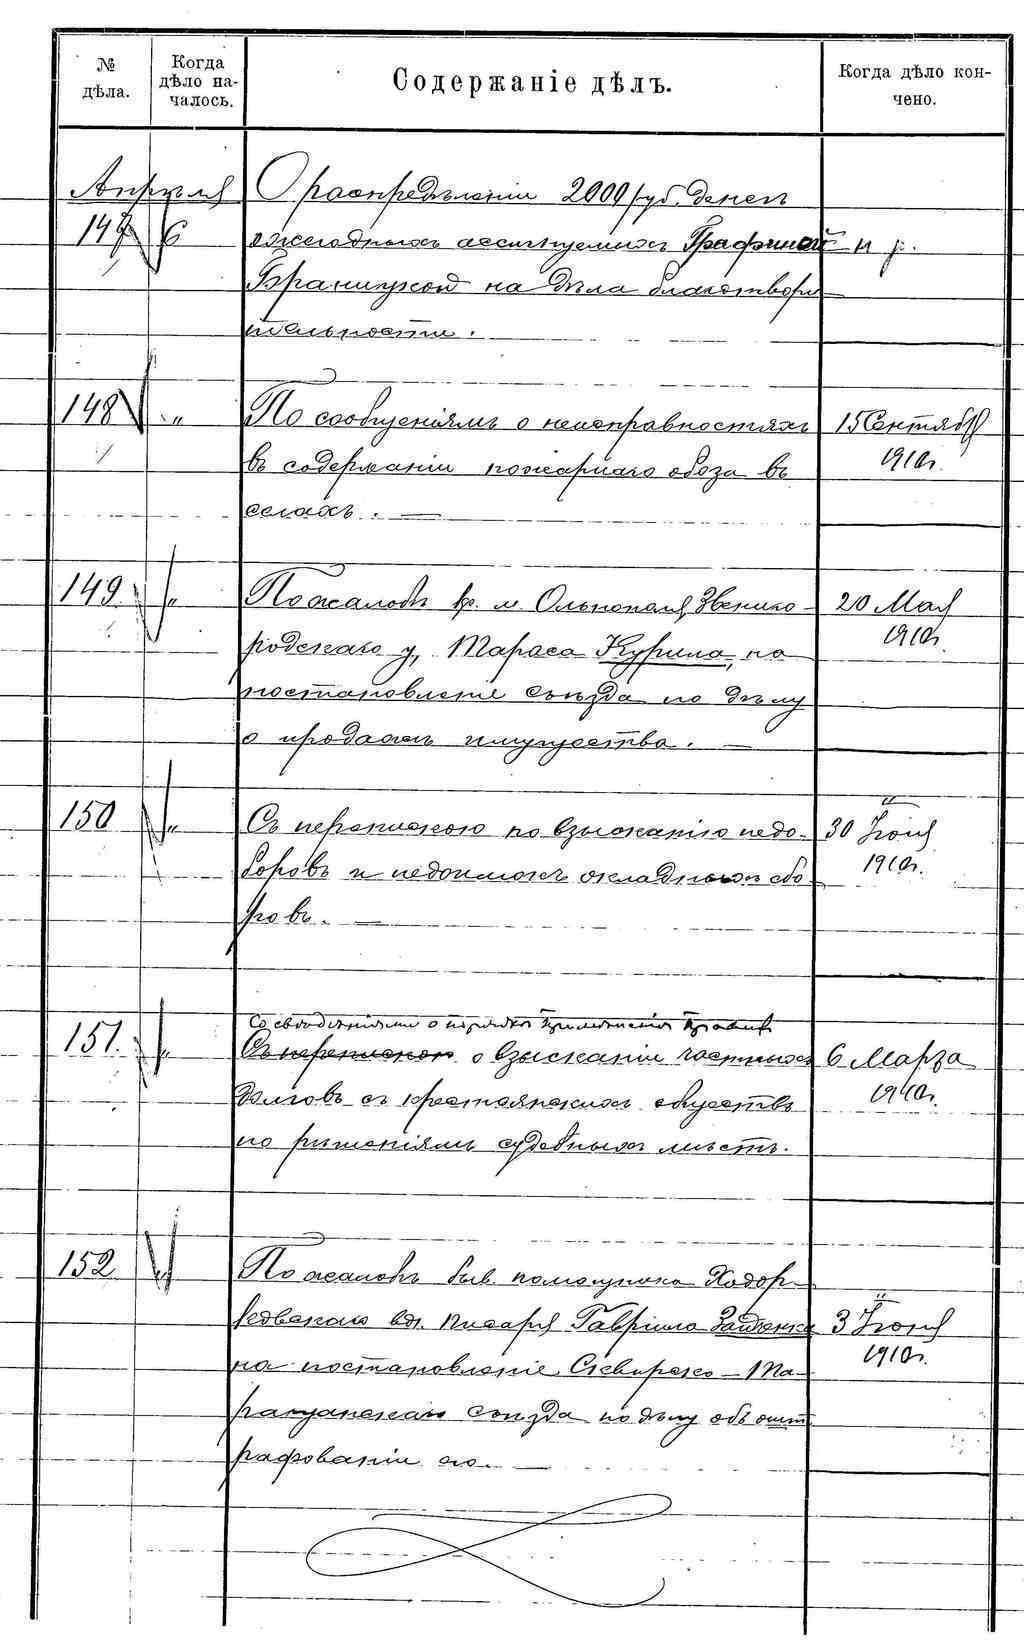 № дѣла.
Когда дѣло на-
чалось.
Содержаніе дѣлъ.
Когда дѣло кон-
чено.
Апрѣля
147 6
О распредѣленіи 2000 руб. денег
ежегодныхъ ассигнуемыхъ Графиней
Браницкой на дѣла благотвори
тельности.
н р.
148 "
По сообщеніямъ о неисправностяхъ
въ содержаніи пожарнаго обоза въ
селахъ. —
15 Сентября
1910г.
149 "
По жалобѣ кр. м. Ольшополя, Звениго-
родскаго у, Тараса Курила, на
постановленіе съѣзда по дѣлу
о продажѣ имущества. —
20 Мая
1910г.
150 "
Съ перепискою по взысканію недо-
боровъ и недоимокъ окладныхъ сбо
ровъ. —
30 Іюня
1910г.
151. "
Со свѣдѣніями о порядкѣ примѣненія правилъ
Съ перепискою о взысканіи частныхъ
долговъ съ крестьянскихъ обществъ
по рѣшеніямъ судебныхъ мѣстъ.
6 Марта
1910г.
152 "
По жалобѣ быв. помощника Ходор-
ковскаго вол. писаря Гавріила
на постановленіе Сквирско-Та-
ращанскаго съѣзда по дѣлу объ ошт
рафованіи его. —
3 Іюня
1910г.